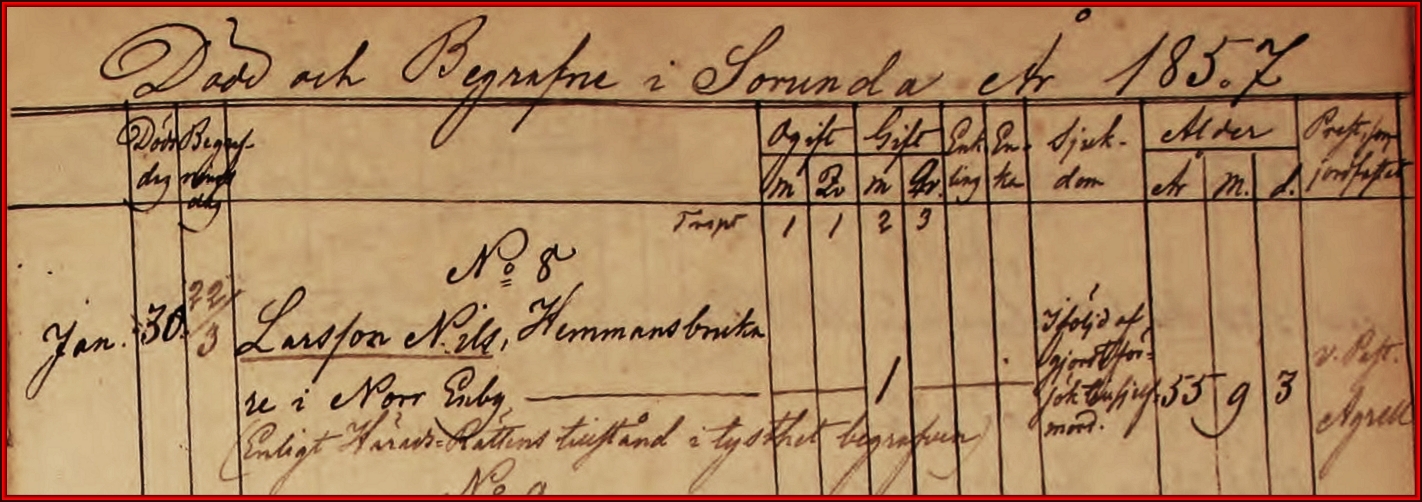 Döde och Begrafne i Sorunda År 1857
Döds dag
Begrafnings dag
Ogift
Gift
Enkling
Enka
Sjukdom
Ålder
Prest, som jordfästat
m Qv m Qv. År M. d.
Trspt 1 1 2 3
No 8
Jan. 30. 22/3 Larsson Nils, Hemmansbruka
re i Norr Enby 1 55 9 3
I följd af
gjordt för-
sök till sjelf-
mord.
v. Past.
Agrell
(Enligt Härads-Rättens tillstånd i tysthet begrafven)
No 9